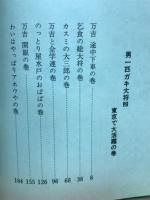 男一匹ガキ大将 四
東京で大活躍の巻
万吉 途中下車の巻 8
乞食の総大将の巻 38
カスミの大三郎の巻 68
万吉と金学連の巻 96
のっとり屋水戸のおばばの巻 126
万吉 開眼の巻 155
わいはやっぱりアホウやの巻 184